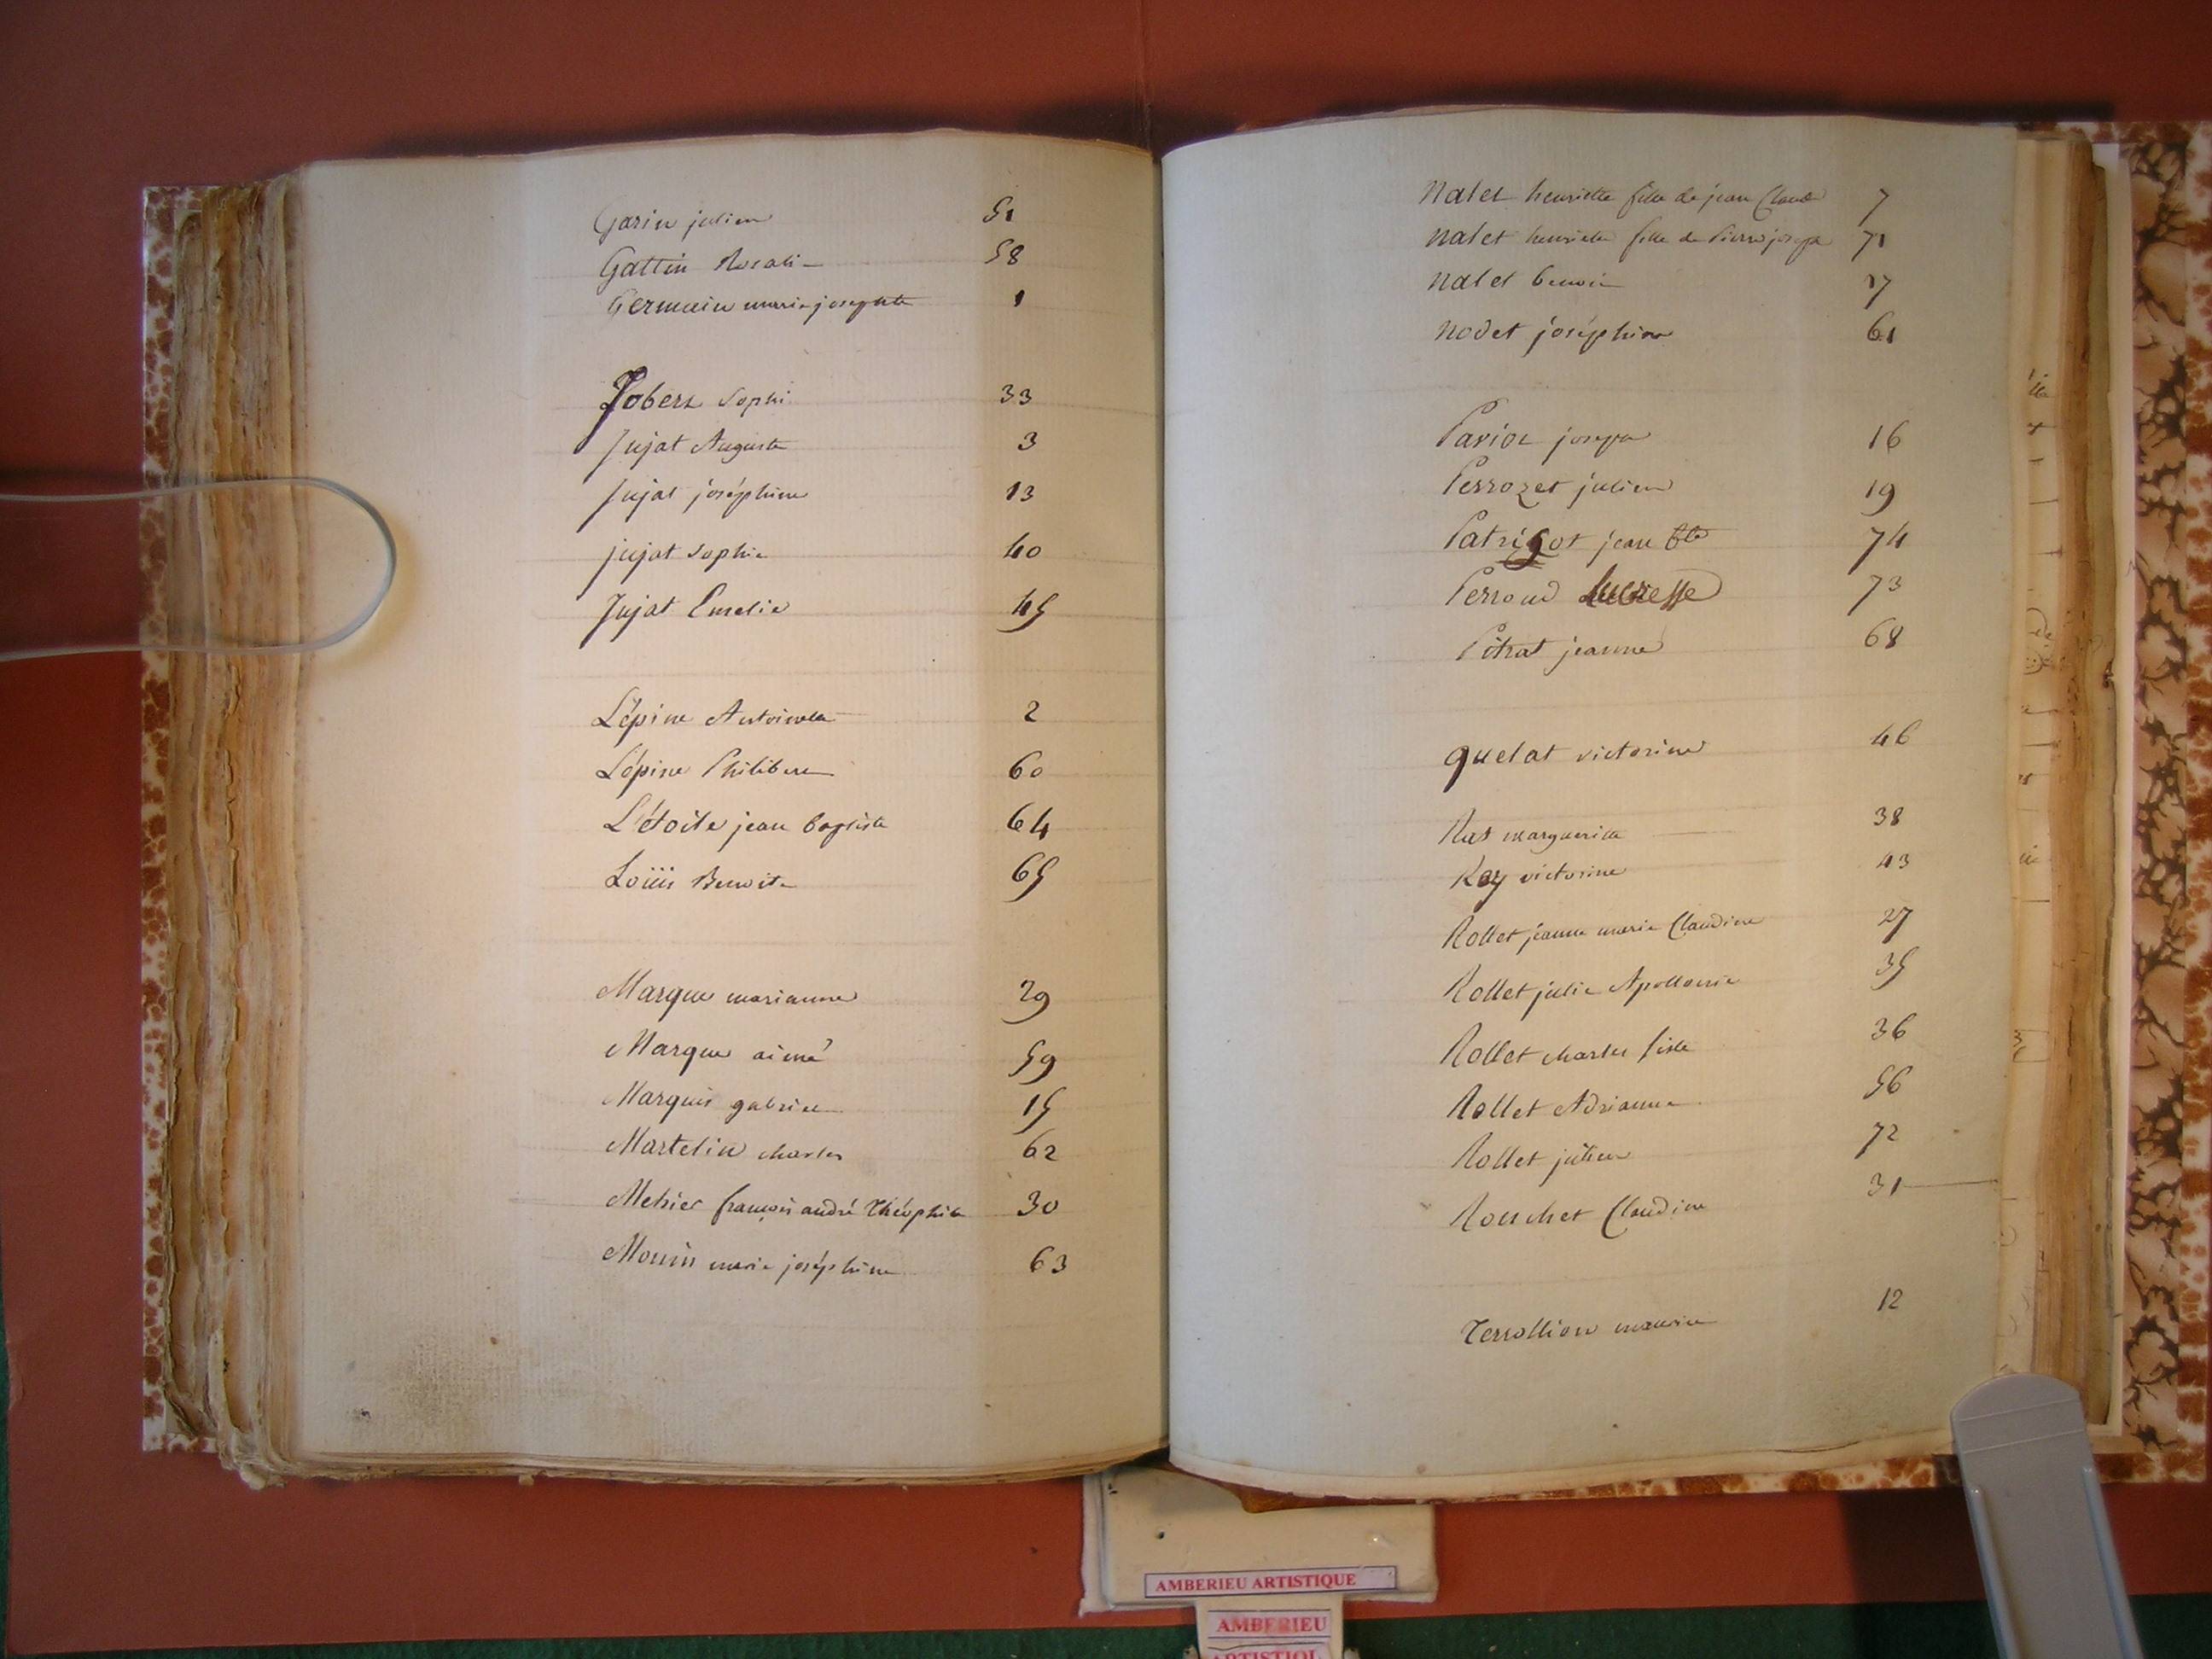 Garin julien 51
Gattin Rosali 58
Germain marie josephte 1
Jobert Sophi 33
Jujat Auguste 3
Jujat joséphine 13
jujat Sophie 40
Jujat Emelie 45
Lépine Antoinette 2
Lépine Philibert 60
L'étoile jean baptiste 64
Loüis Benoite 65
Marque marianne 29
Marque aimé 59
Marquis gabriel 15
Martelin charles 62
Mehier françois andré Théophile 30
Monin marie joséphine 63
Nalet henriette fille de jean Claude 7
Nalet henriette fille de Pierre joseph 71
Nalet benoit 17
Nodet joséphine 61
Pariot joseph 16
Perrozet julien 19
Patrigot jean Bte 74
Perroud Lucresse 73
Pitrat jeanne 68
quelat victorine 46
Ras marguerite 38
Rey victorine 43
Rollet jeanne marie Claudine 27
Rollet julie Apollonie 35
Rollet charles 36
Rollet Adrianne 56
Rollet julien 72
Rouchet Claudine 31
Terrollion 12
AMBERIEU ARTISTIQUE
AMBERIEU